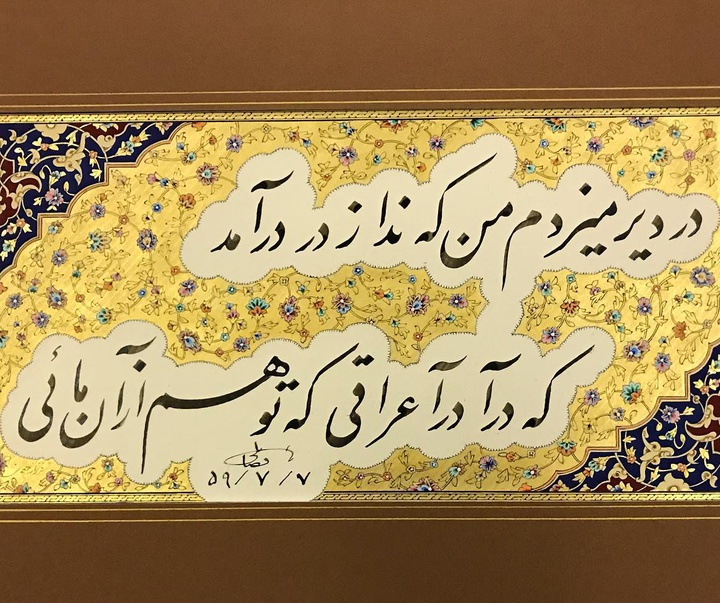 در دیر میزدم من که ندا ز در درآمد
که درآ درآ عراقی که تو هم ازآن مائی
۵۹/۷/۷